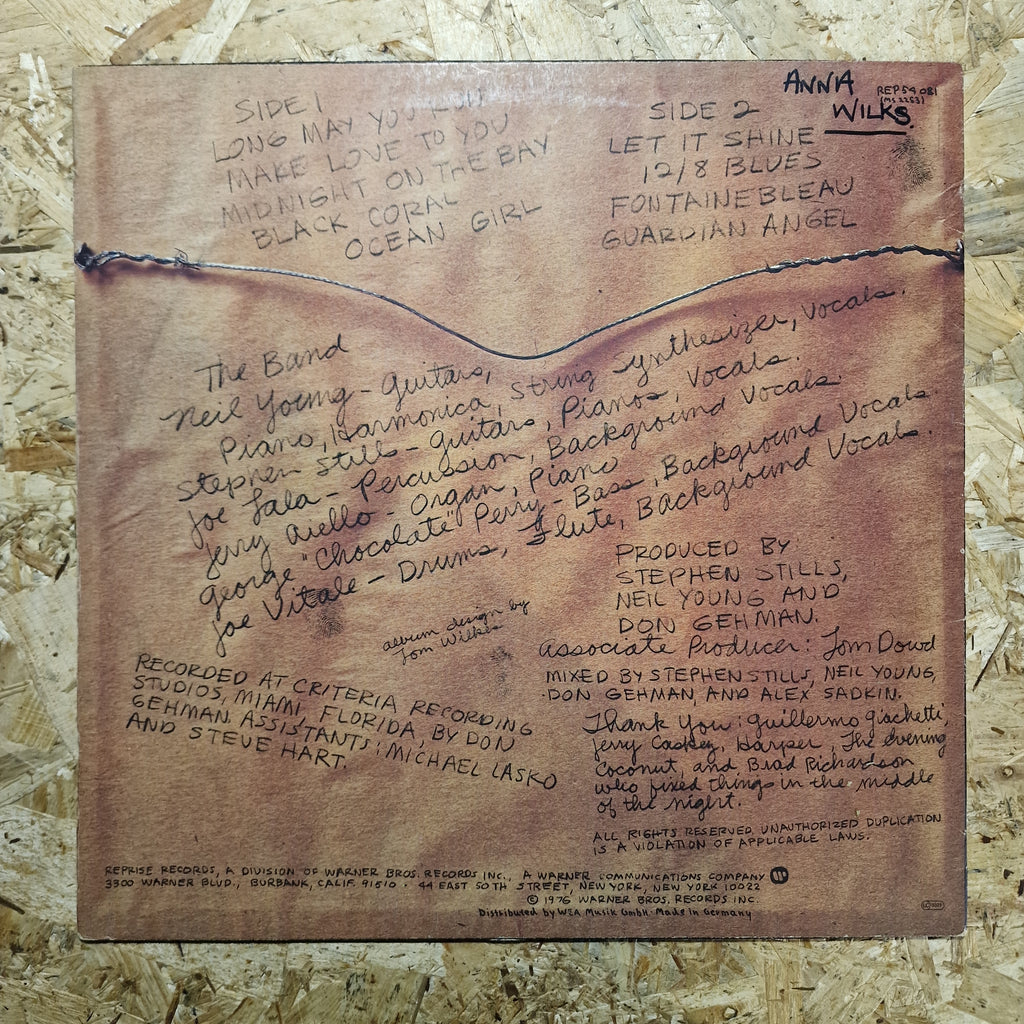 ANNA
WILKS.
REP 54 081
(MS 2253)
SIDE 1
LONG MAY YOU RUN
MAKE LOVE TO YOU
MIDNIGHT ON THE BAY
BLACK CORAL
OCEAN GIRL
SIDE 2
LET IT SHINE
12/8 BLUES
FONTAINEBLEAU
GUARDIAN ANGEL
The Band
Neil Young - Guitars,
Piano, Harmonica, String Synthesizer, Vocals.
Stephen Stills - Guitars, Pianos, Vocals.
Joe Lala - Percussion, Background Vocals.
Jerry Aiello - Organ, Piano
George "Chocolate" Perry - Bass, Background Vocals.
Joe Vitale - Drums, Flute, Background Vocals.
album design by
Tom Wilkes
PRODUCED BY
STEPHEN STILLS,
NEIL YOUNG AND
DON GEHMAN.
Associate Producer: Tom Dowd
MIXED BY STEPHEN STILLS, NEIL YOUNG,
DON GEHMAN, AND ALEX SADKIN.
RECORDED AT CRITERIA RECORDING
STUDIOS, MIAMI, FLORIDA, BY DON
GEHMAN. ASSISTANTS: MICHAEL LASKO
AND STEVE HART.
Thank You: Guillermo Giachetti,
Jerry Caskey, Harper, The evening
Coconut, and Brad Richardson
who fixed things in the middle
of the night.
ALL RIGHTS RESERVED, UNAUTHORIZED DUPLICATION
IS A VIOLATION OF APPLICABLE LAWS.
REPRISE RECORDS, A DIVISION OF WARNER BROS. RECORDS INC., A WARNER COMMUNICATIONS COMPANY
3300 WARNER BLVD., BURBANK, CALIF. 91510 · 44 EAST 50TH STREET, NEW YORK, NEW YORK 10022
© 1976 WARNER BROS. RECORDS INC.
Distributed by WEA Musik GmbH · Made in Germany